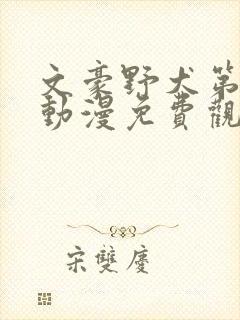 文豪野犬第
動漫免費觀
宋雙慶